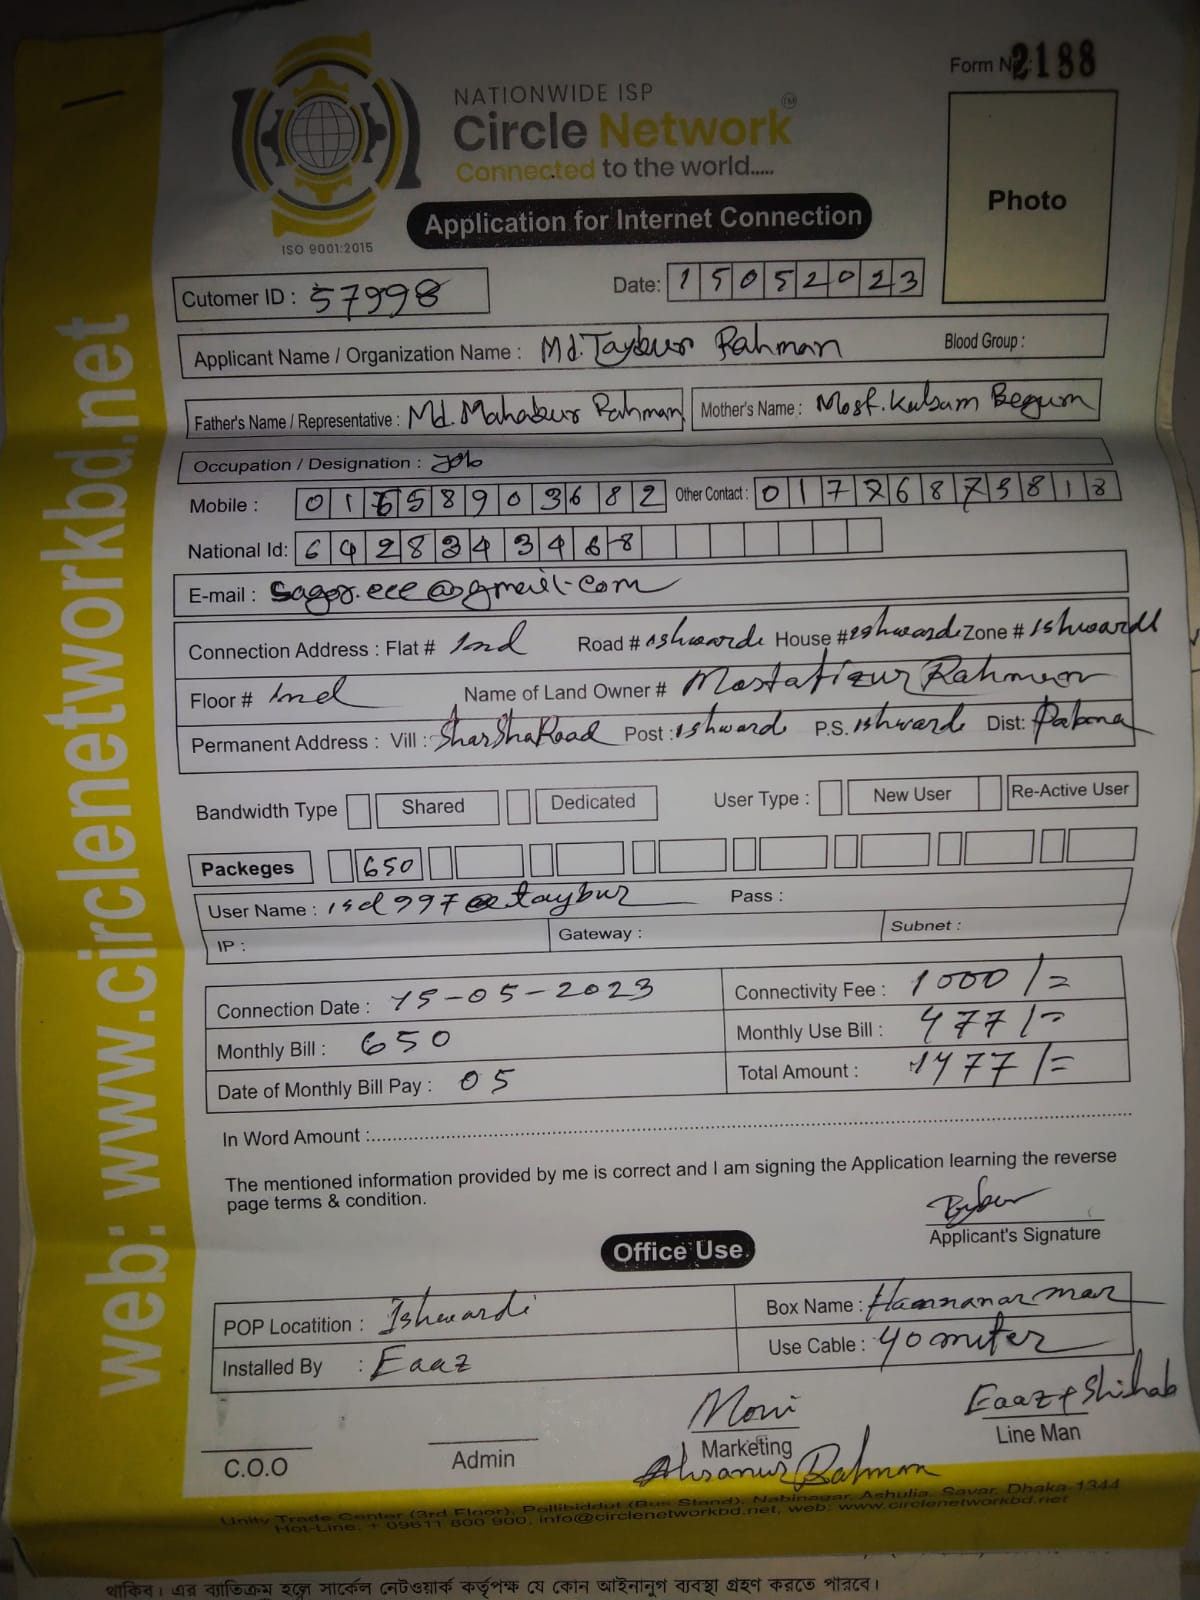 Form No: 2188
NATIONWIDE ISP
Circle Network TM
Connected to the world.....
ISO 9001:2015
Application for Internet Connection
Photo
Cutomer ID : 57998
Date: 15052023
Applicant Name / Organization Name : Md. Taybur Rahman Blood Group :
Father's Name / Representative : Md. Mahabur Rahman Mother's Name : Most. Kulsum Begum
Occupation / Designation : Job
Mobile : 01658903682 Other Contact :
National Id: 6428343468
E-mail : sagor.ece@gmail.com
Connection Address : Flat # 2nd Road # ishwardi House # ishwardi Zone # Ishwardi
Floor # 2nd Name of Land Owner # Mostafizur Rahman
Permanent Address : Vill : SharSha Road Post : ishwardi P.S. ishwardi Dist: Pabna
Bandwidth Type Shared Dedicated User Type : New User Re-Active User
Packeges 650
User Name : isd997@taybur Pass :
IP : Gateway : Subnet :
Connection Date : 15-05-2023 Connectivity Fee : 1000/=
Monthly Bill : 650 Monthly Use Bill : 477/=
Date of Monthly Bill Pay : 05 Total Amount : 1477/=
In Word Amount :
The mentioned information provided by me is correct and I am signing the Application learning the reverse
page terms & condition.
Applicant's Signature
Office Use
POP Locatition : Ishwardi Box Name :
Installed By : Eaaz Use Cable : 40 miter
Moni Eaaz + Shihab
C.O.O Admin Marketing Line Man
Ahsanur Rahman
Unity Trade Center (3rd Floor), Pollibiddut (Bus Stand), Nabinagar, Ashulia, Savar, Dhaka-1344
Hot-Line: + 09611 800 900, info@circlenetworkbd.net, web: www.circlenetworkbd.net
থাকিব। এর ব্যতিক্রম হলে সার্কেল নেটওয়ার্ক কর্তৃপক্ষ যে কোন আইনানুগ ব্যবস্থা গ্রহণ করতে পারবে।
web: www.circlenetworkbd.net